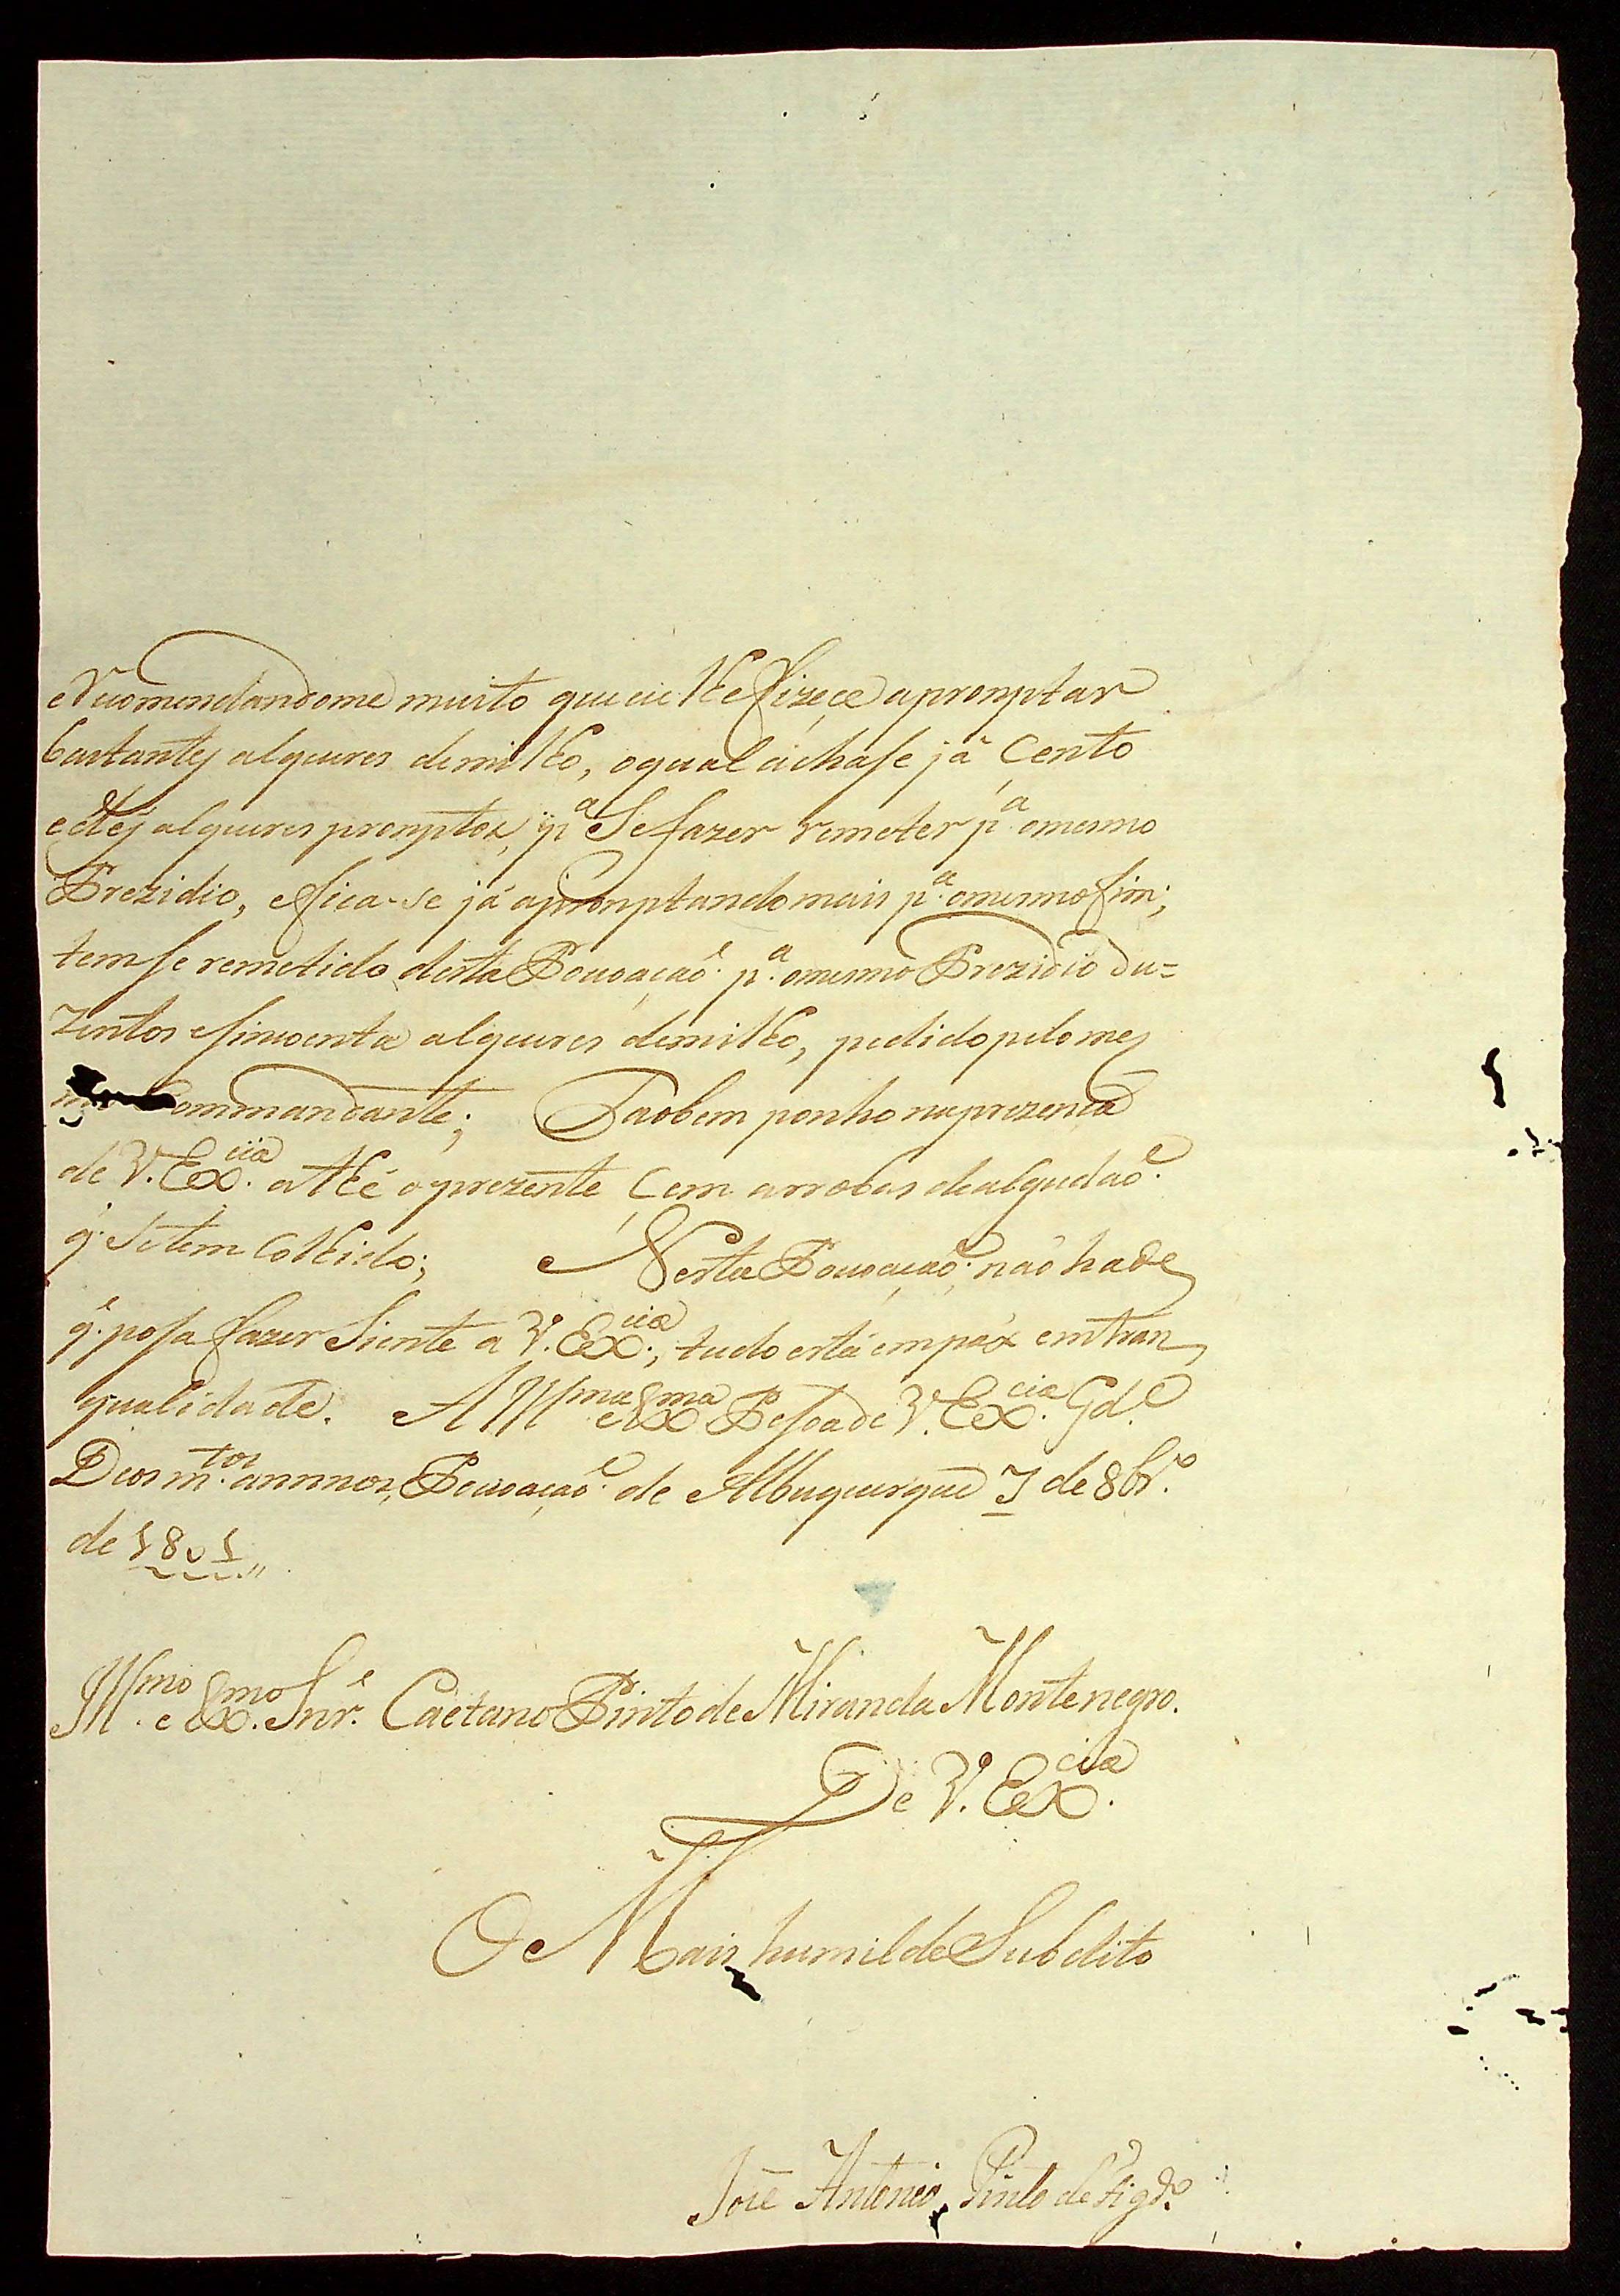 eRecomendandome muito que eu lhe fizeçe apromptar
bastantes alqueires demilho, oqual áchase já Cento
e des alqueires promptos, pª Sefazer remeter pª omesmo
Prezidio, efica-se já apromptandomais pª omesmofim;
temse remetido desta Povoaçaõ. pª omesmo Prezidio du=
zentos esincoenta alqueires demilho, pedido pelo mes
mo Commandante; Taobem ponho naprezença
de V. Exᶜⁱᵃ athé oprezente Cem arrobas dealgudaõ.
q̃. Setem Colhido; Nesta Povoaçaõ. não hade
q̃. posa fazer Siente a V. Exᶜⁱᵃ, tudo está empáx emtran
qualidade. A Illᵐᵃ e Exᵐᵃ Pesoa de V. Exᶜⁱᵃ Gdᵉ
Deos m.ᵗᵒˢ annnos, Povoaçaõ. de Albuquerque 7 de 8brº.
de 1801,,
Illᵐᵒ. e Exᵐᵒ. Snr̃. Caetano Pinto de Miranda Montenegro.
De V. Exᶜⁱᵃ.
O Mais humilde Subdito
Joze Antonio Pinto de Figdº